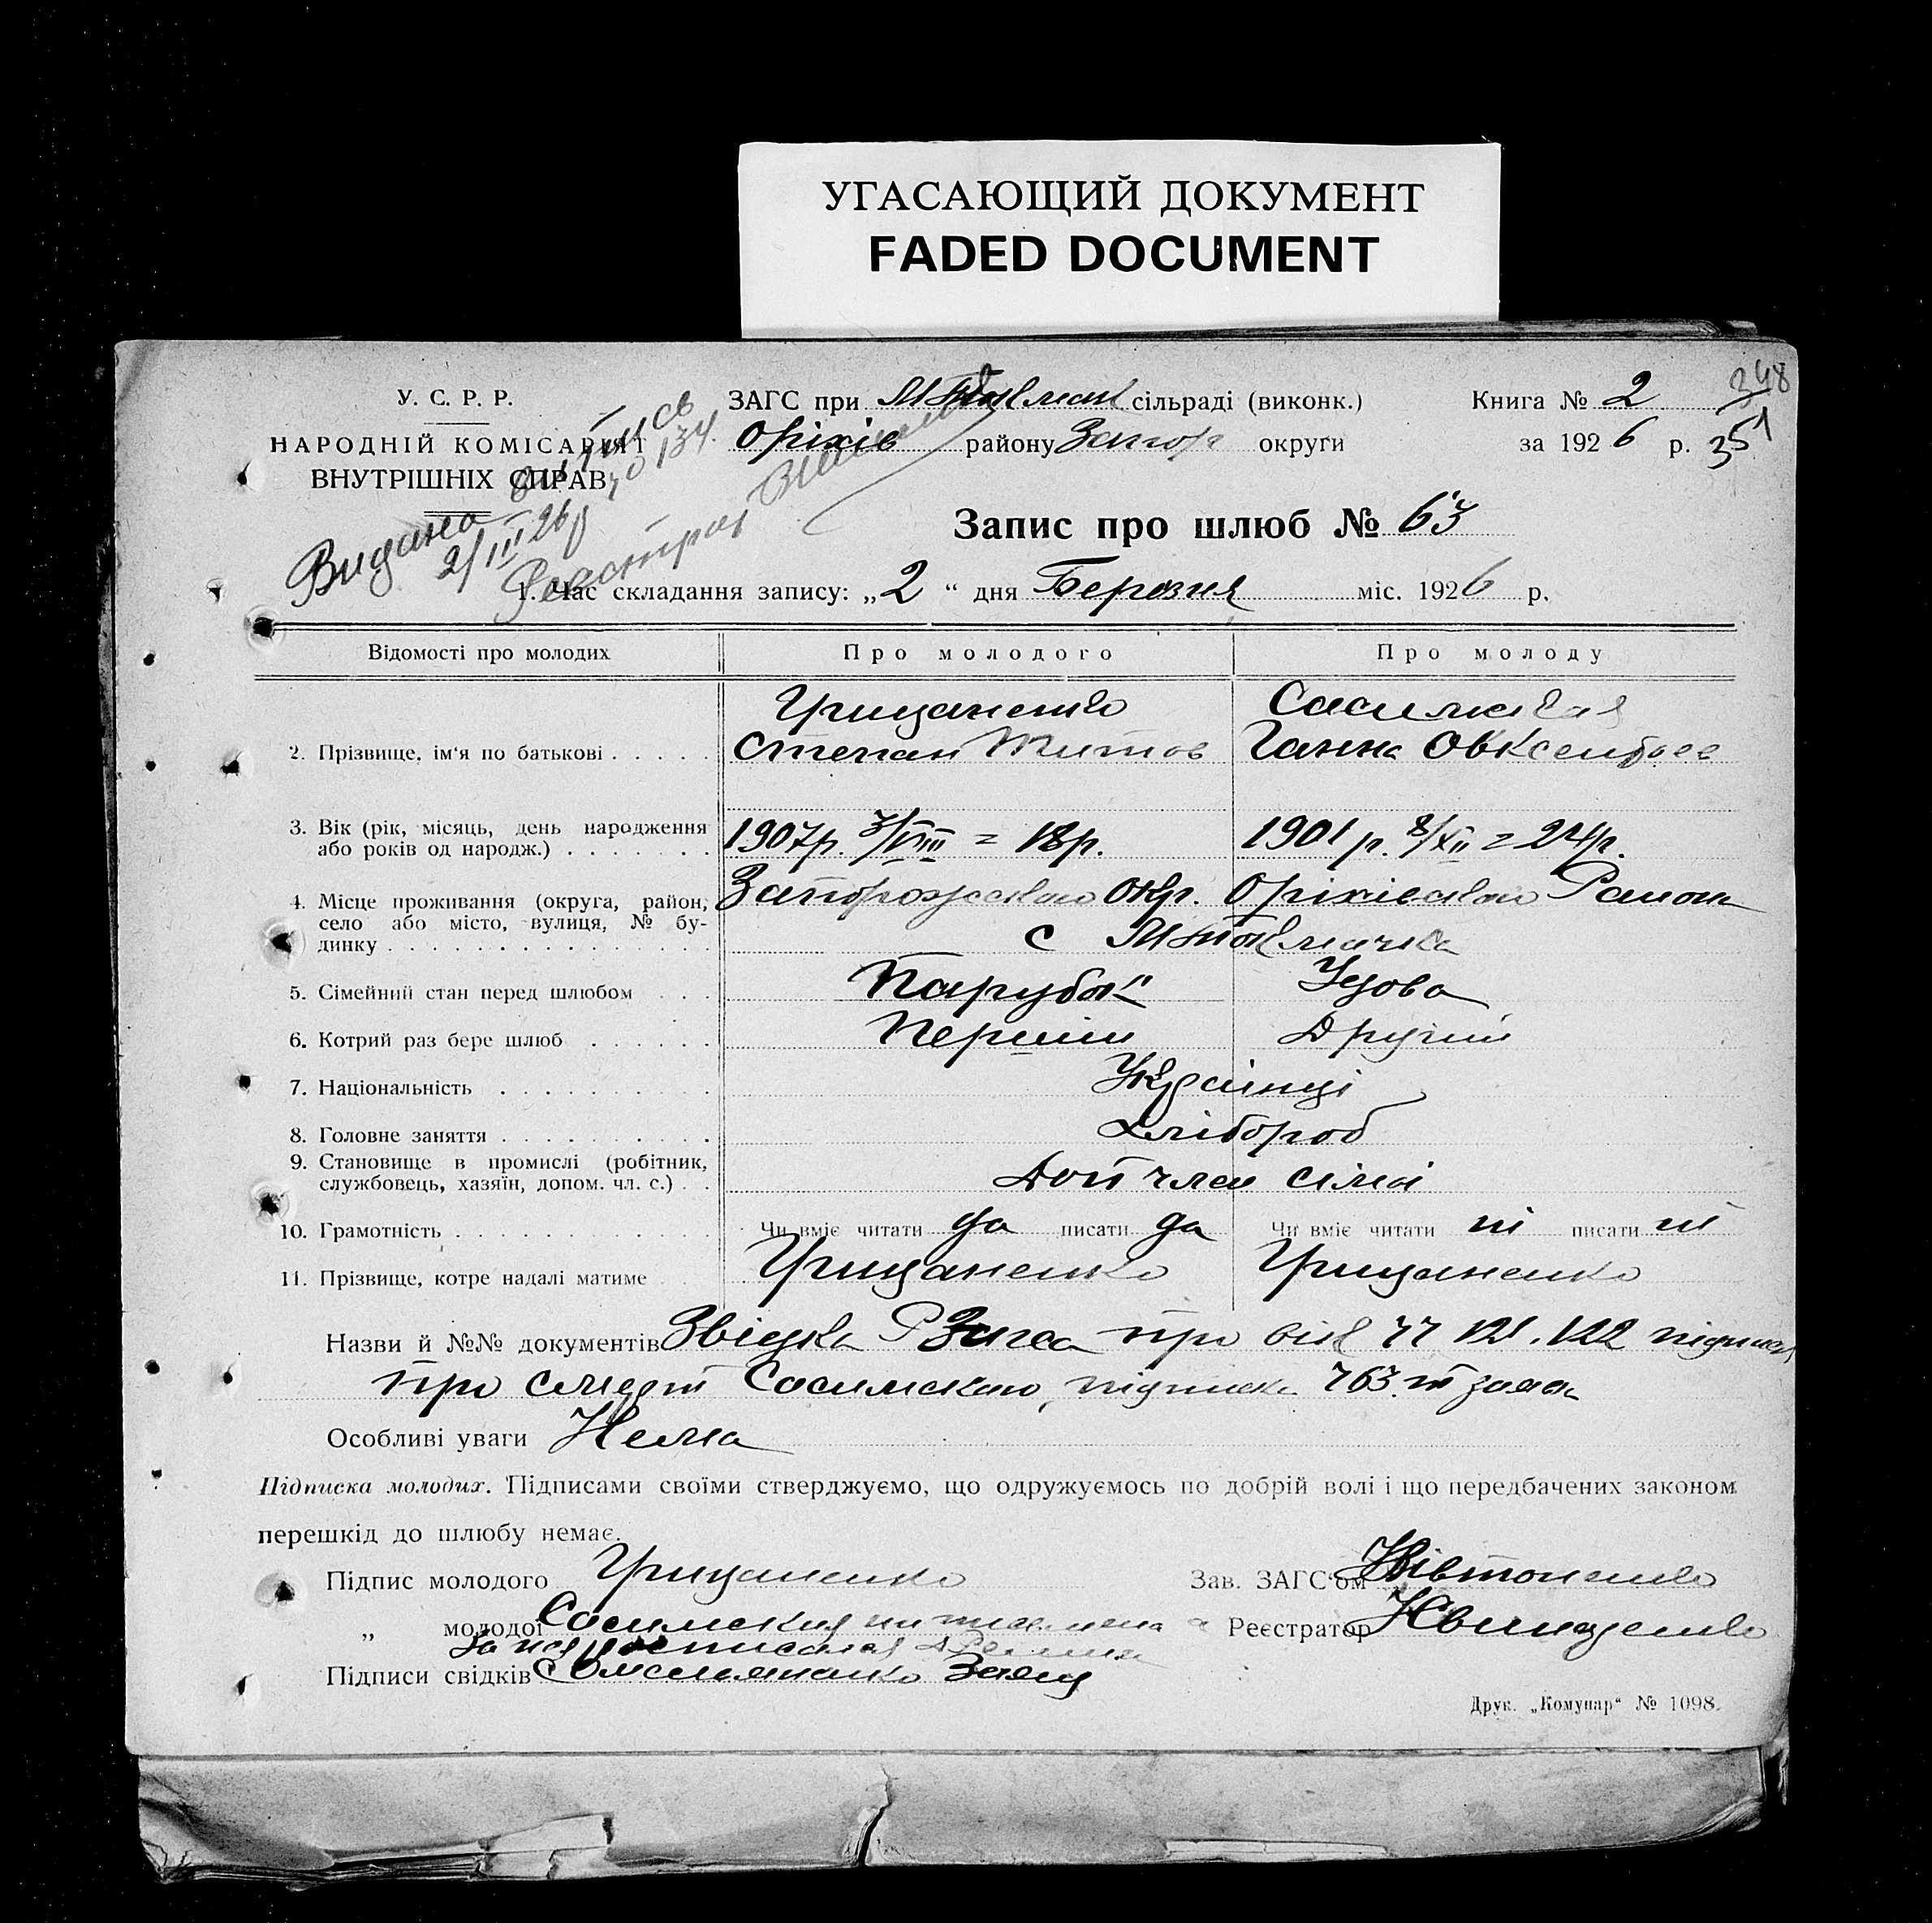 УГАСАЮЩИЙ ДОКУМЕНТ
FADED DOCUMENT
348
351
У. С. Р. Р.
НАРОДНІЙ КОМІСАРІЯТ
ВНУТРІШНІХ СПРАВ
Видана
2/III 26р
ЗАГС при сільраді (виконк.)
Оріхів району Запор округи
Книга № 2
за 1926 р.
Запис про шлюб № 63
1. Час складання запису: „2“ дня Березня міс. 1926 р.
Відомості про молодих Про молодого Про молоду
Грицаненко
2. Прізвище, ім'я по батькові Степан Титов Ганна Овксентьев
3. Вік (рік, місяць, день народження або років од народж.) 1907р. 3/VIII = 18р. 1901 р. 8/XII = 24р.
4. Місце проживання (округа, район, село або місто, вулиця, № будинку Запорожської Окр. Оріхівської Района
с
5. Сімейний стан перед шлюбом Парубок Удова
6. Котрий раз бере шлюб Перший Другий
7. Національність Українці
8. Головне заняття Хлібороб
9. Становище в промислі (робітник, службовець, хазяїн, допом. чл. с.) Доп член сімї
10. Грамотність Чи вміє читати да писати да Чи вміє читати ні писати ні
11. Прізвище, котре надалі матиме Грицаненко Грицаненко
Назви й №№ документів Звідка РЗагса про вік 77 121. 122 підписка
про смерт підписка 763.
Особливі уваги Нема
Підписка молодих. Підписами своїми стверджуємо, що одружуємось по добрій волі і що передбачених законом
перешкід до шлюбу немає.
Підпис молодого Грицаненко Зав. ЗАГС'ом
„ молодої Реєстратор
Підписи свідків Заяц
Друк. „Комунар“ № 1098.